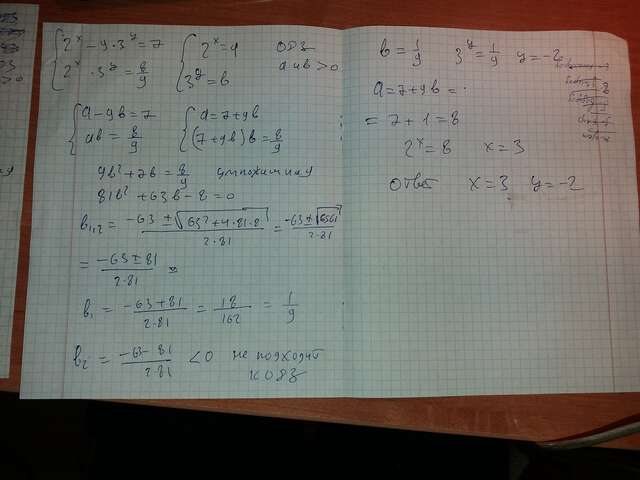 { 2^x - 9·3^y = 7
{ 2^x · 3^y = 8/9
{ 2^x = a
{ 3^y = b
ОДЗ
a и b > 0
{ a - 9b = 7
{ ab = 8/9
{ a = 7 + 9b
{ (7 + 9b) b = 8/9
9b² + 7b = 8/9
81b² + 63b - 8 = 0
b₁,₂ = (-63 ± √(63² + 4·81·8)) / 2·81 =
= (-63 ± 81) / 2·81
b₁ = (-63 + 81) / 2·81 = 18/162 = 1/9
b₂ = (-63 - 81) / 2·81 < 0 не подходит
к ОДЗ
b = 1/9 3^y = 1/9 y = -2
a = 7 + 9b =
= 7 + 1 = 8
2^x = 8 x = 3
Ответ x = 3 y = -2